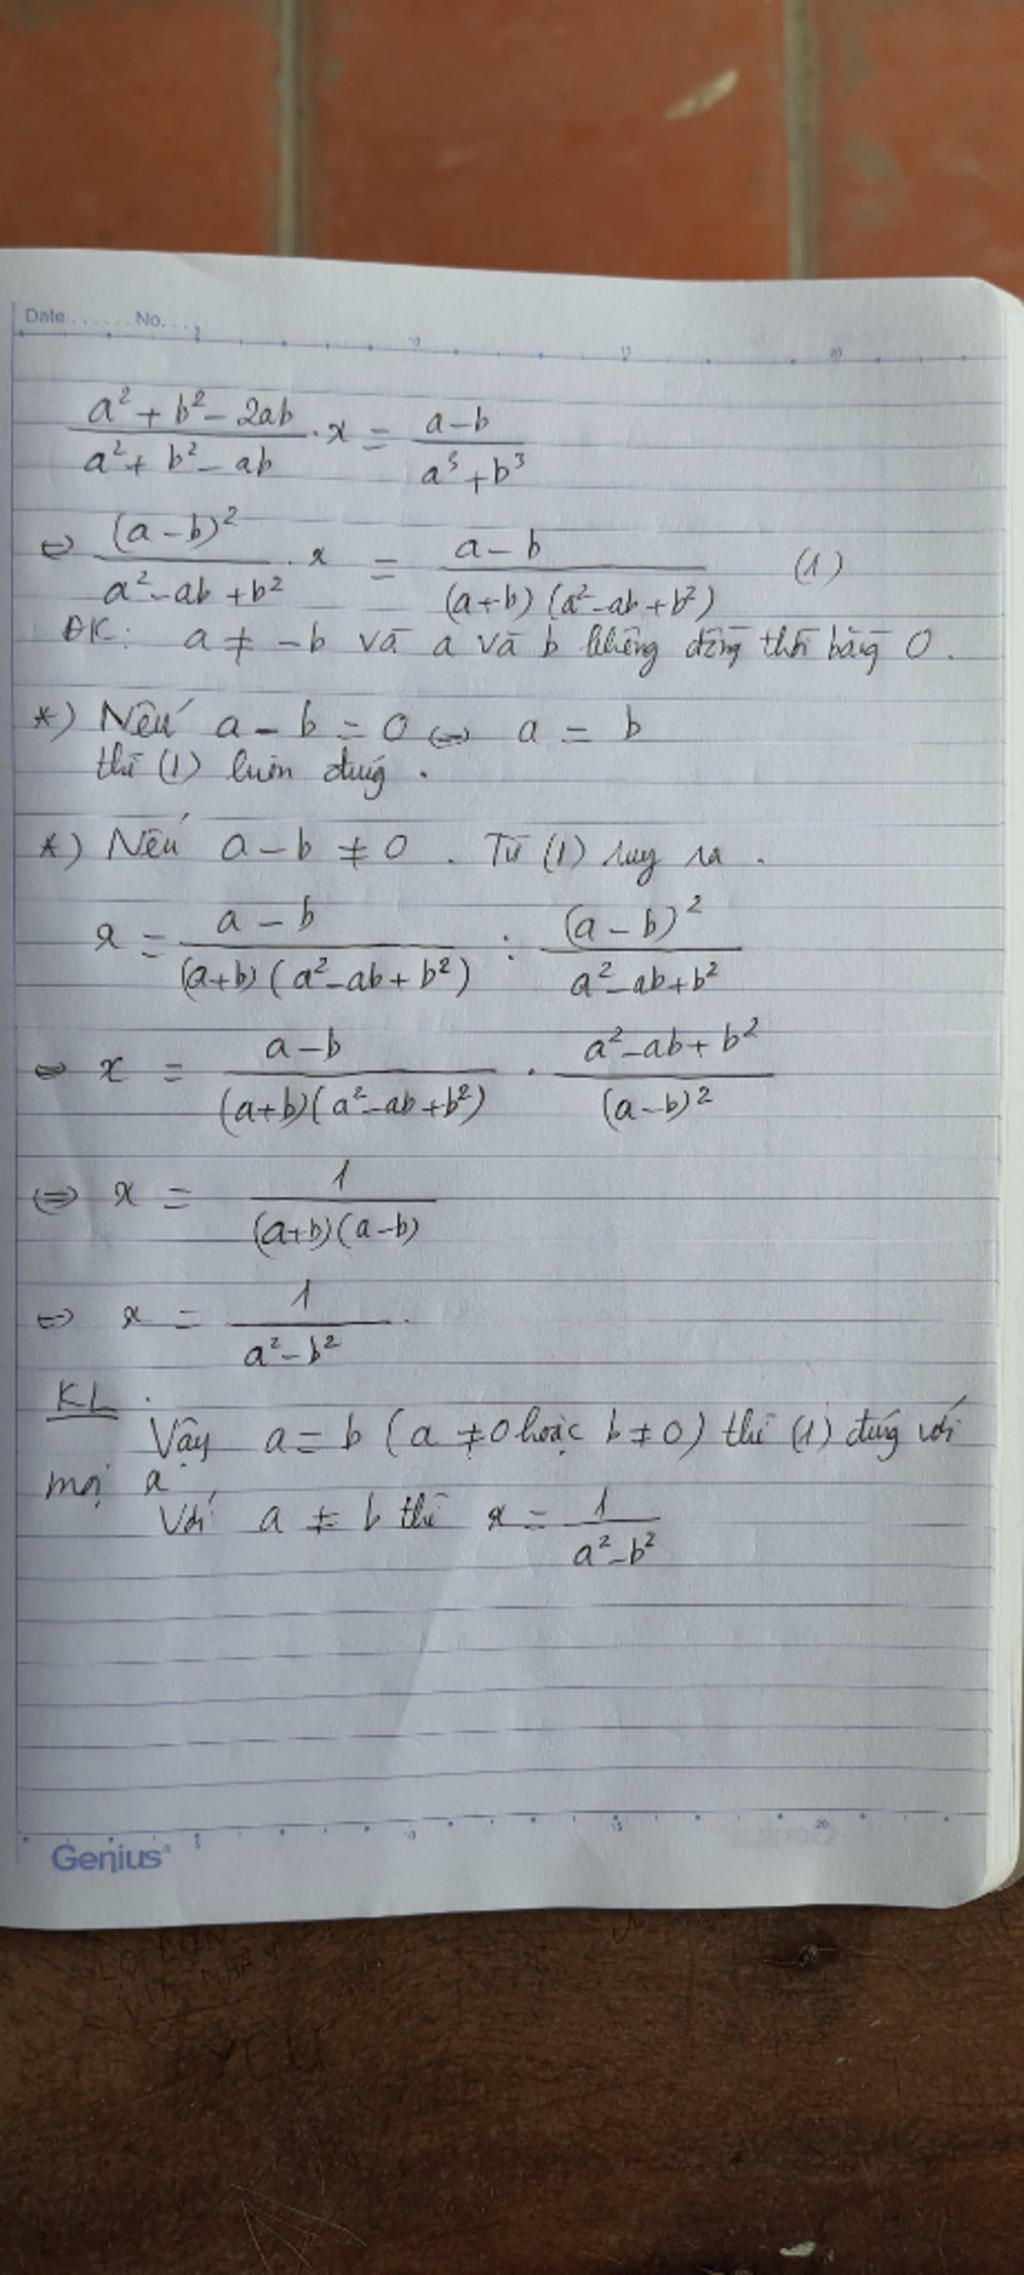 Date ...... No. ...
5 10 15 20
a² + b² - 2ab / a² + b² - ab . x = a - b / a³ + b³
⇔ (a - b)² / a² - ab + b² . x = a - b / (a+b)(a² - ab + b²) (1)
ĐK: a ≠ -b và a và b không đồng thời bằng 0.
*) Nếu a - b = 0 ⇔ a = b
thì (1) luôn đúng.
*) Nếu a - b ≠ 0. Từ (1) suy ra.
x = a - b / (a+b)(a² - ab + b²) : (a - b)² / a² - ab + b²
⇔ x = a - b / (a+b)(a² - ab + b²) . a² - ab + b² / (a - b)²
⇔ x = 1 / (a+b)(a-b)
⇔ x = 1 / a² - b².
KL:
Vậy a = b (a ≠ 0 hoặc b ≠ 0) thì (1) đúng với
mọi x
Với a ≠ b thì x = 1 / a² - b²
5 10 15 20
Genius